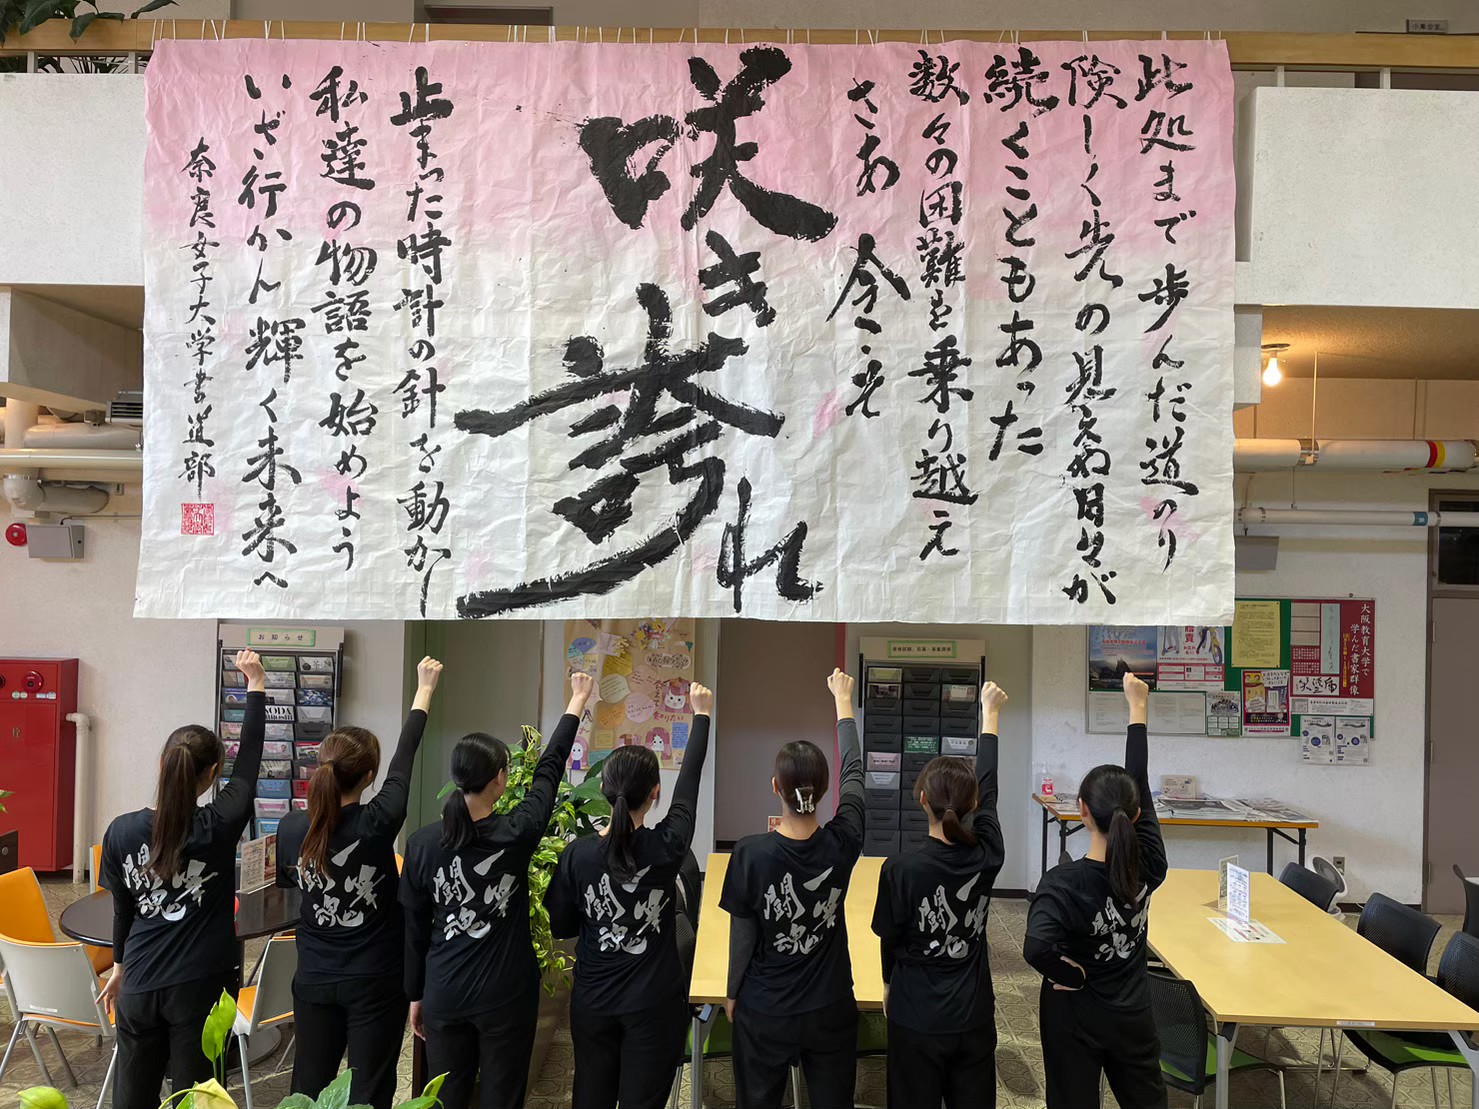 此処まで歩んだ道のり
険しく先の見えぬ日々が
続くこともあった
数々の困難を乗り越え
さあ 今こそ
咲き誇れ
止まった時計の針を動かし
私達の物語を始めよう
いざ行かん輝く未来へ
奈良女子大学書道部
お知らせ
大阪教育大学で
学んだ書家群像
一筆
闘魂
一筆
闘魂
一筆
闘魂
一筆
闘魂
一筆
闘魂
一筆
闘魂
一筆
闘魂